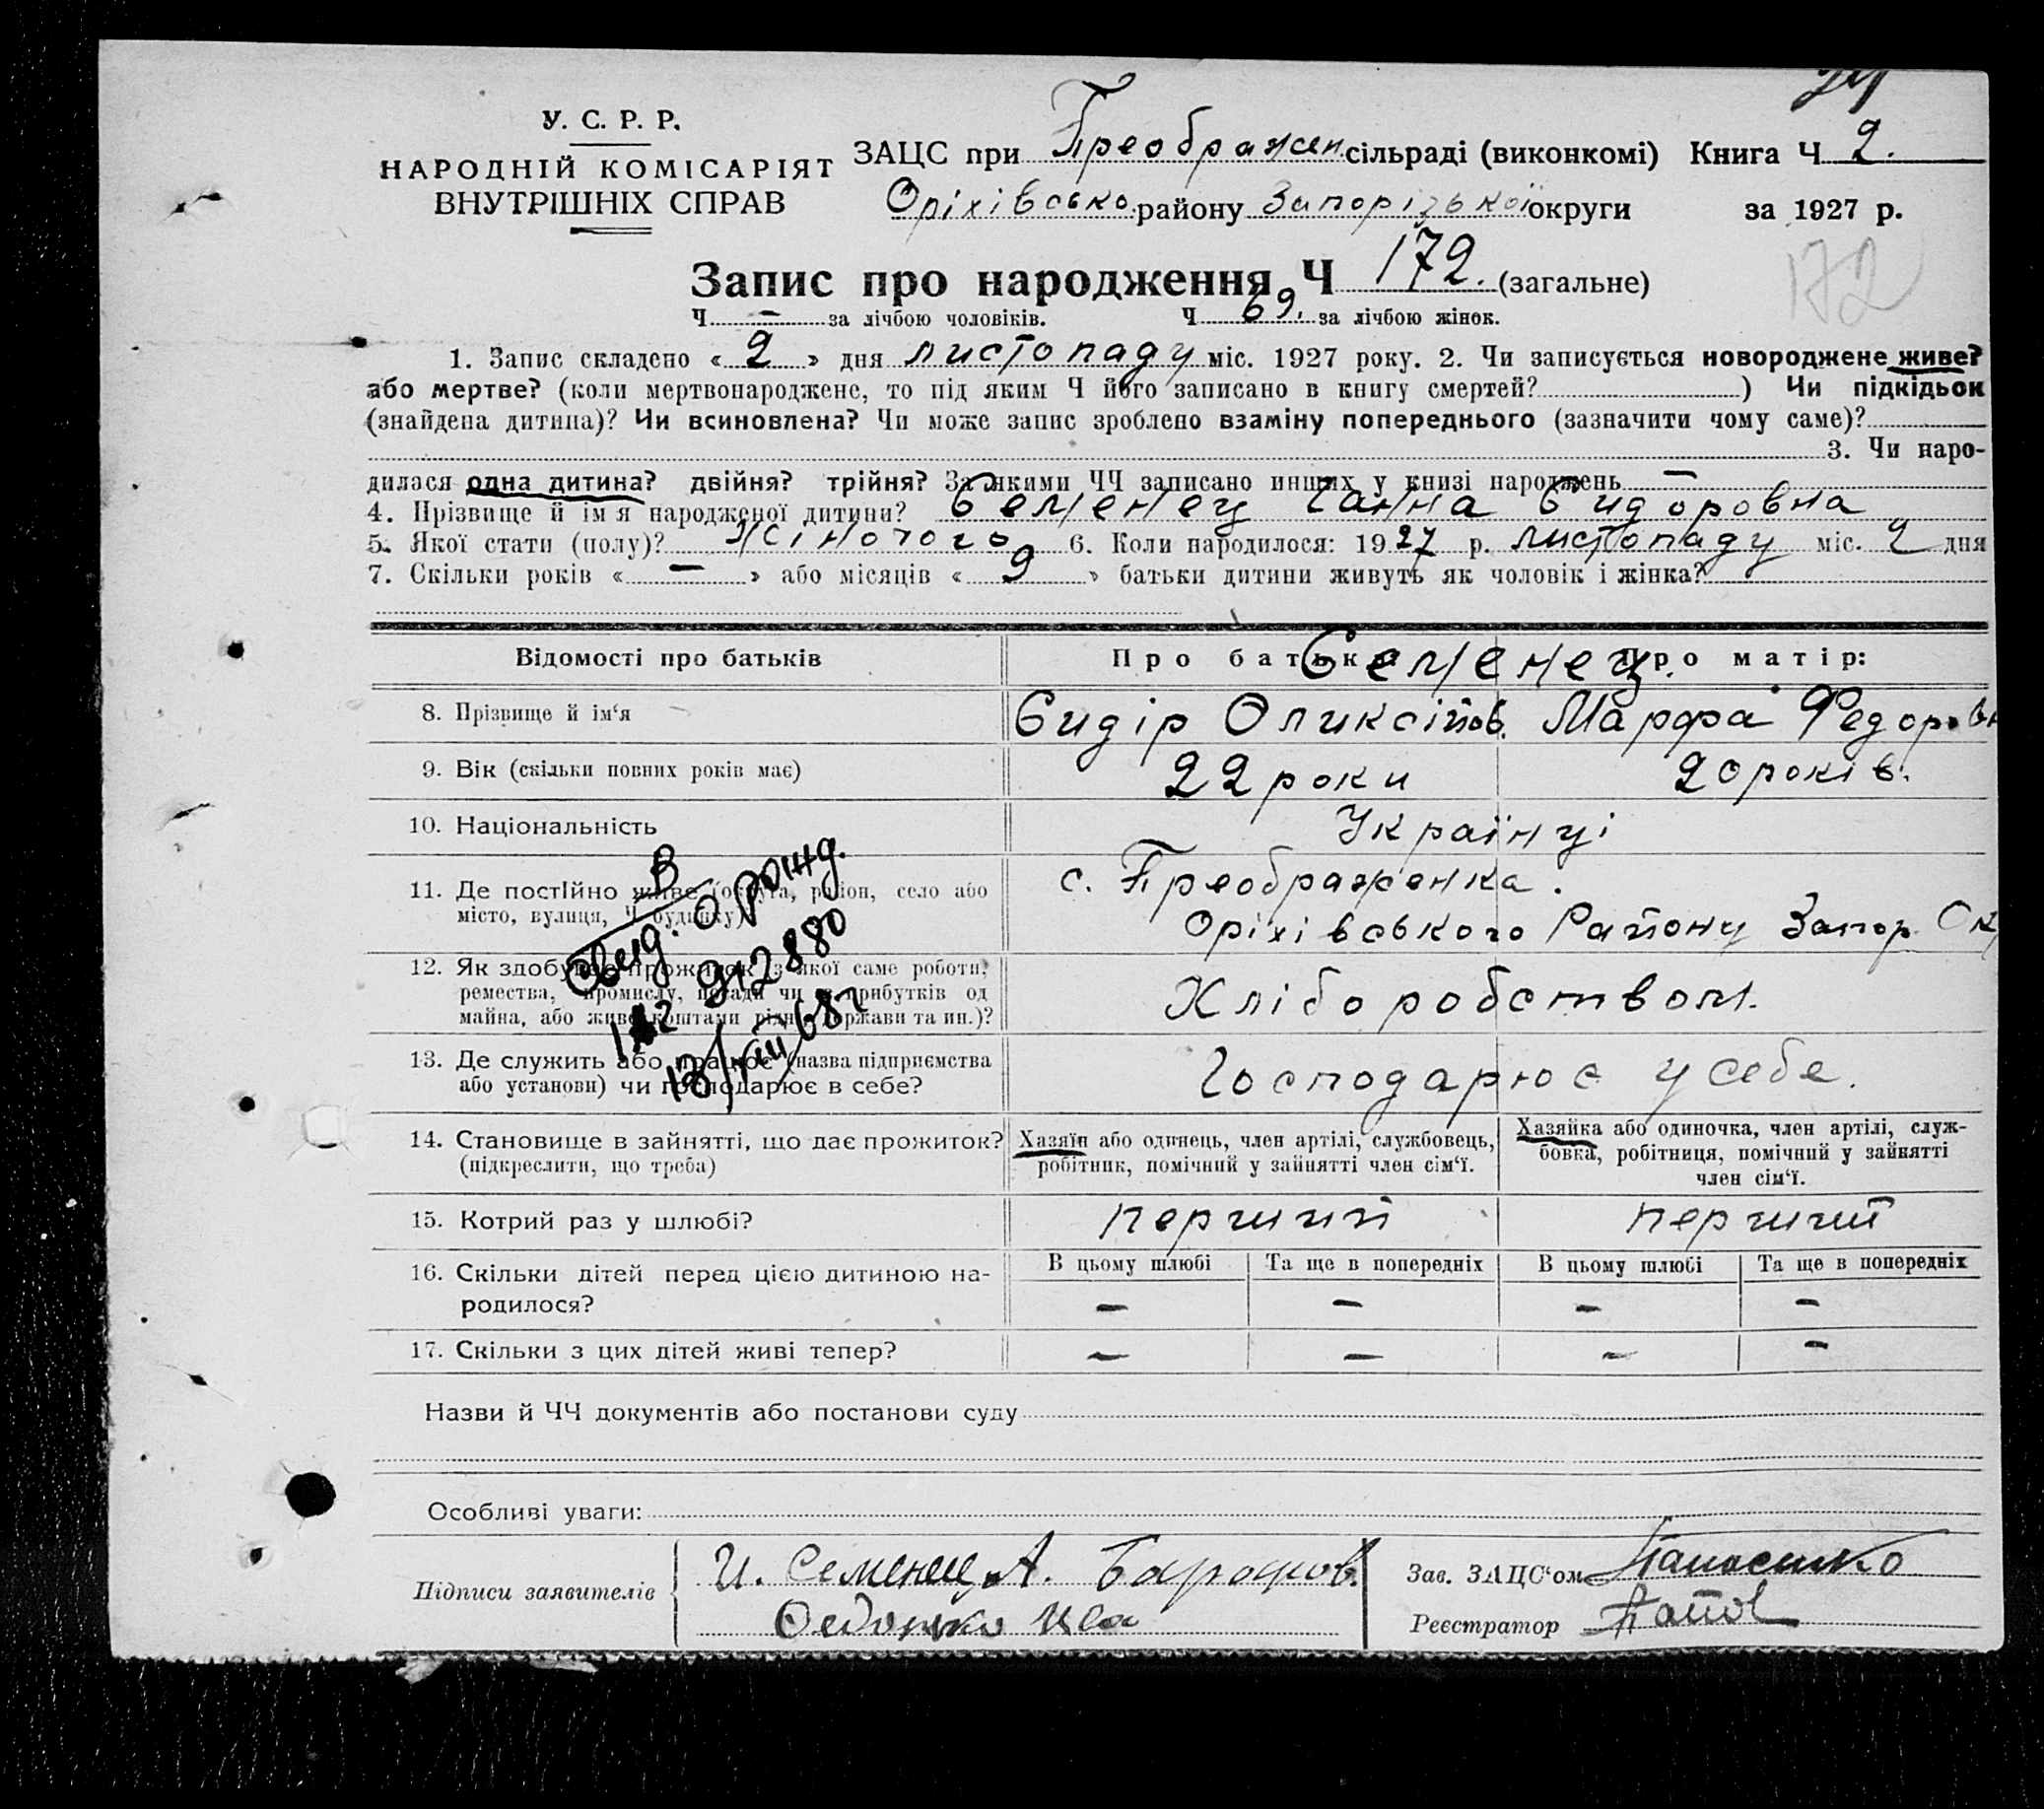 У. С. Р. Р.
НАРОДНІЙ КОМІСАРІЯТ
ВНУТРІШНІХ СПРАВ
ЗАЦС при Преображен. сільраді (виконкомі) Книга Ч 2.
Оріхівсько. району Запорізької округи за 1927 р.
Запис про народження Ч 172. (загальне)
172
Ч — за лічбою чоловіків. Ч 69. за лічбою жінок.
1. Запис складено « 2 » дня листопаду міс. 1927 року. 2. Чи записується новороджене живе?
або мертве? (коли мертвонароджене, то під яким Ч його записано в книгу смертей? ) Чи підкідьок
(знайдена дитина)? Чи всиновлена? Чи може запис зроблено взаміну попереднього (зазначити чому саме)?
3. Чи наро-
дилася одна дитина? двійня? трійня? За якими ЧЧ записано инших у книзі народжень —
4. Прізвище й ім'я народженої дитини? Семенец Ганна Сидоровна
5. Якої стати (полу)? жіночого 6. Коли народилося: 1927 р. листопаду міс. 2 дня
7. Скільки років « — » або місяців « 9 » батьки дитини живуть як чоловік і жінка?
Відомості про батьків Про батька: Про матір:
Семенец.
8. Прізвище й ім'я Сидір Оликсійов. Марфа Федоровн
9. Вік (скільки повних років має) 22 роки 20 років.
10. Національність Українці
11. Де постійно живе (округа, район, село або місто, вулиця, Ч будинку) с. Преображенка.
Оріхівського Району Запор. Ок
В
свид. о рожд.
912880
12. Як здобуває прожиток (з якої саме роботи, ремества, промислу, посади чи з прибутків од майна, або живе коштами рідні, держави та ин.)? Хліборобством.
13. Де служить або працює (назва підприємства або установи) чи господарює в себе? Господарює у себе.
14. Становище в зайнятті, що дає прожиток? (підкреслити, що треба)
Хазяїн або одинець, член артілі, службовець, робітник, помічний у зайнятті член сім'ї.
Хазяйка або одиночка, член артілі, служ-
бовка, робітниця, помічний у зайнятті
член сім'ї.
15. Котрий раз у шлюбі? перший перший
16. Скільки дітей перед цією дитиною на-
родилося?
В цьому шлюбі Та ще в попередніх В цьому шлюбі Та ще в попередніх
— — — —
17. Скільки з цих дітей живі тепер? — — — —
Назви й ЧЧ документів або постанови суду
Особливі уваги:
Підписи заявителів И. Семенец А.
Зав. ЗАЦС'ом
Реєстратор